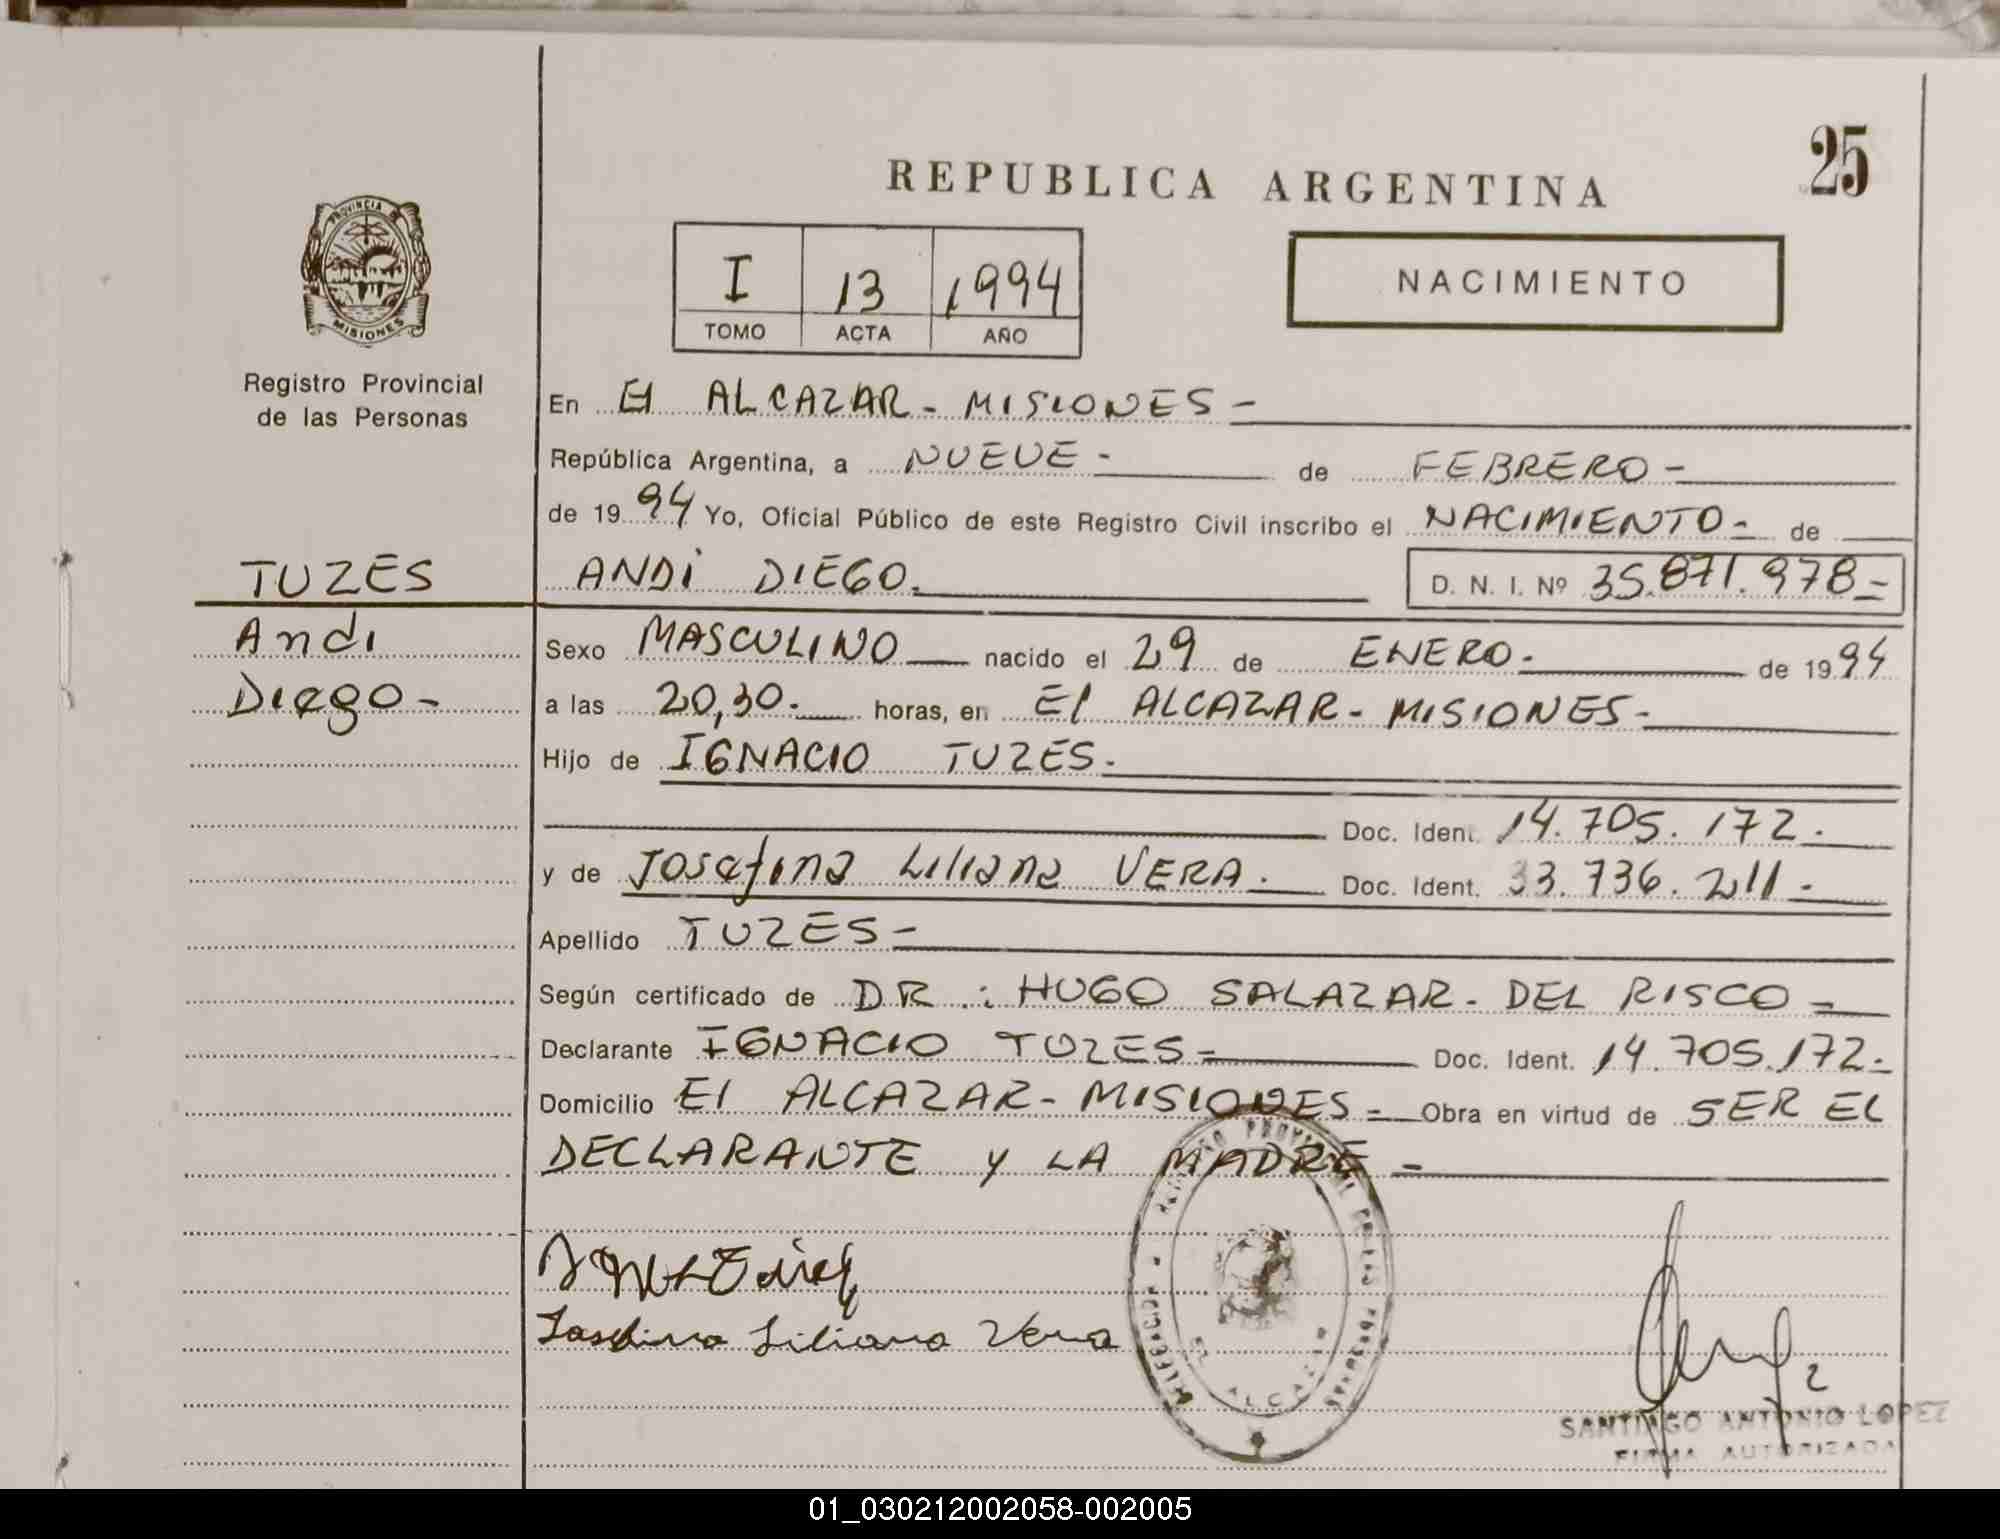 25
REPUBLICA ARGENTINA
PROVINCIA DE
MISIONES
I 13 1994
TOMO ACTA AÑO
NACIMIENTO
Registro Provincial
de las Personas
En El ALCAZAR - MISIONES -
República Argentina, a NUEVE - de FEBRERO -
de 1994 Yo, Oficial Público de este Registro Civil inscribo el NACIMIENTO - de
TUZES
ANDI DIEGO. D. N. I. Nº 35.871.978 -
Andi
Sexo MASCULINO nacido el 29 de ENERO. de 1994
Diego -
a las 20,30. horas, en El ALCAZAR - MISIONES -
Hijo de IGNACIO TUZES.
Doc. Ident. 14.705.172.
y de Josefina Liliana VERA. Doc. Ident. 33.736.211 -
Apellido TUZES -
Según certificado de DR.: HUGO SALAZAR - DEL RISCO -
Declarante IGNACIO TUZES - Doc. Ident. 14.705.172 -
Domicilio El ALCAZAR - MISIONES - Obra en virtud de SER EL
DECLARANTE y LA MADRE -
Josefina Liliana Vera
DELEGACION REGISTRO PROVINCIAL DE LAS PERSONAS
EL ALCAZAR
SANTIAGO ANTONIO LOPEZ
FIRMA AUTORIZADA
01_030212002058-002005